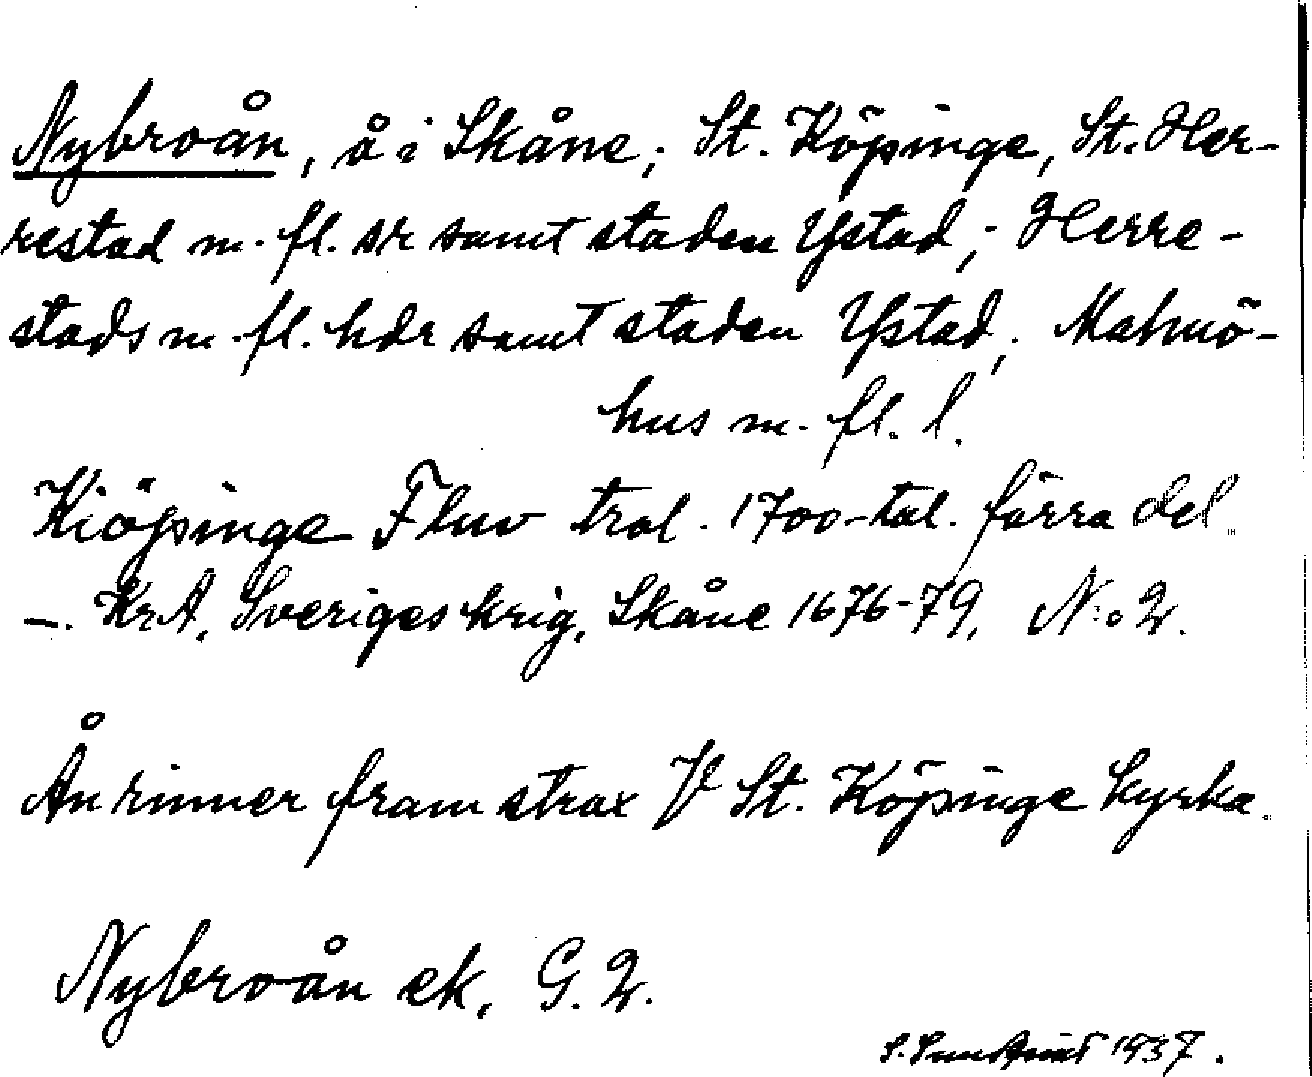 Nybroån, å i Skåne; St. Köpinge, St. Her-
restad m. fl. sr samt staden Ystad; Herre-
stads m. fl. hdr samt staden Ystad; Malmö-
hus m. fl. l.
Kiöpinge Fluv trol. 1700-tal. förra del.
—. KrA, Sveriges krig, Skåne 1676-79, N:o 2.
Ån rinner fram strax V St. Köpinge kyrka.
Nybroån ek. G. 2.
S. Sundqvist 1937.